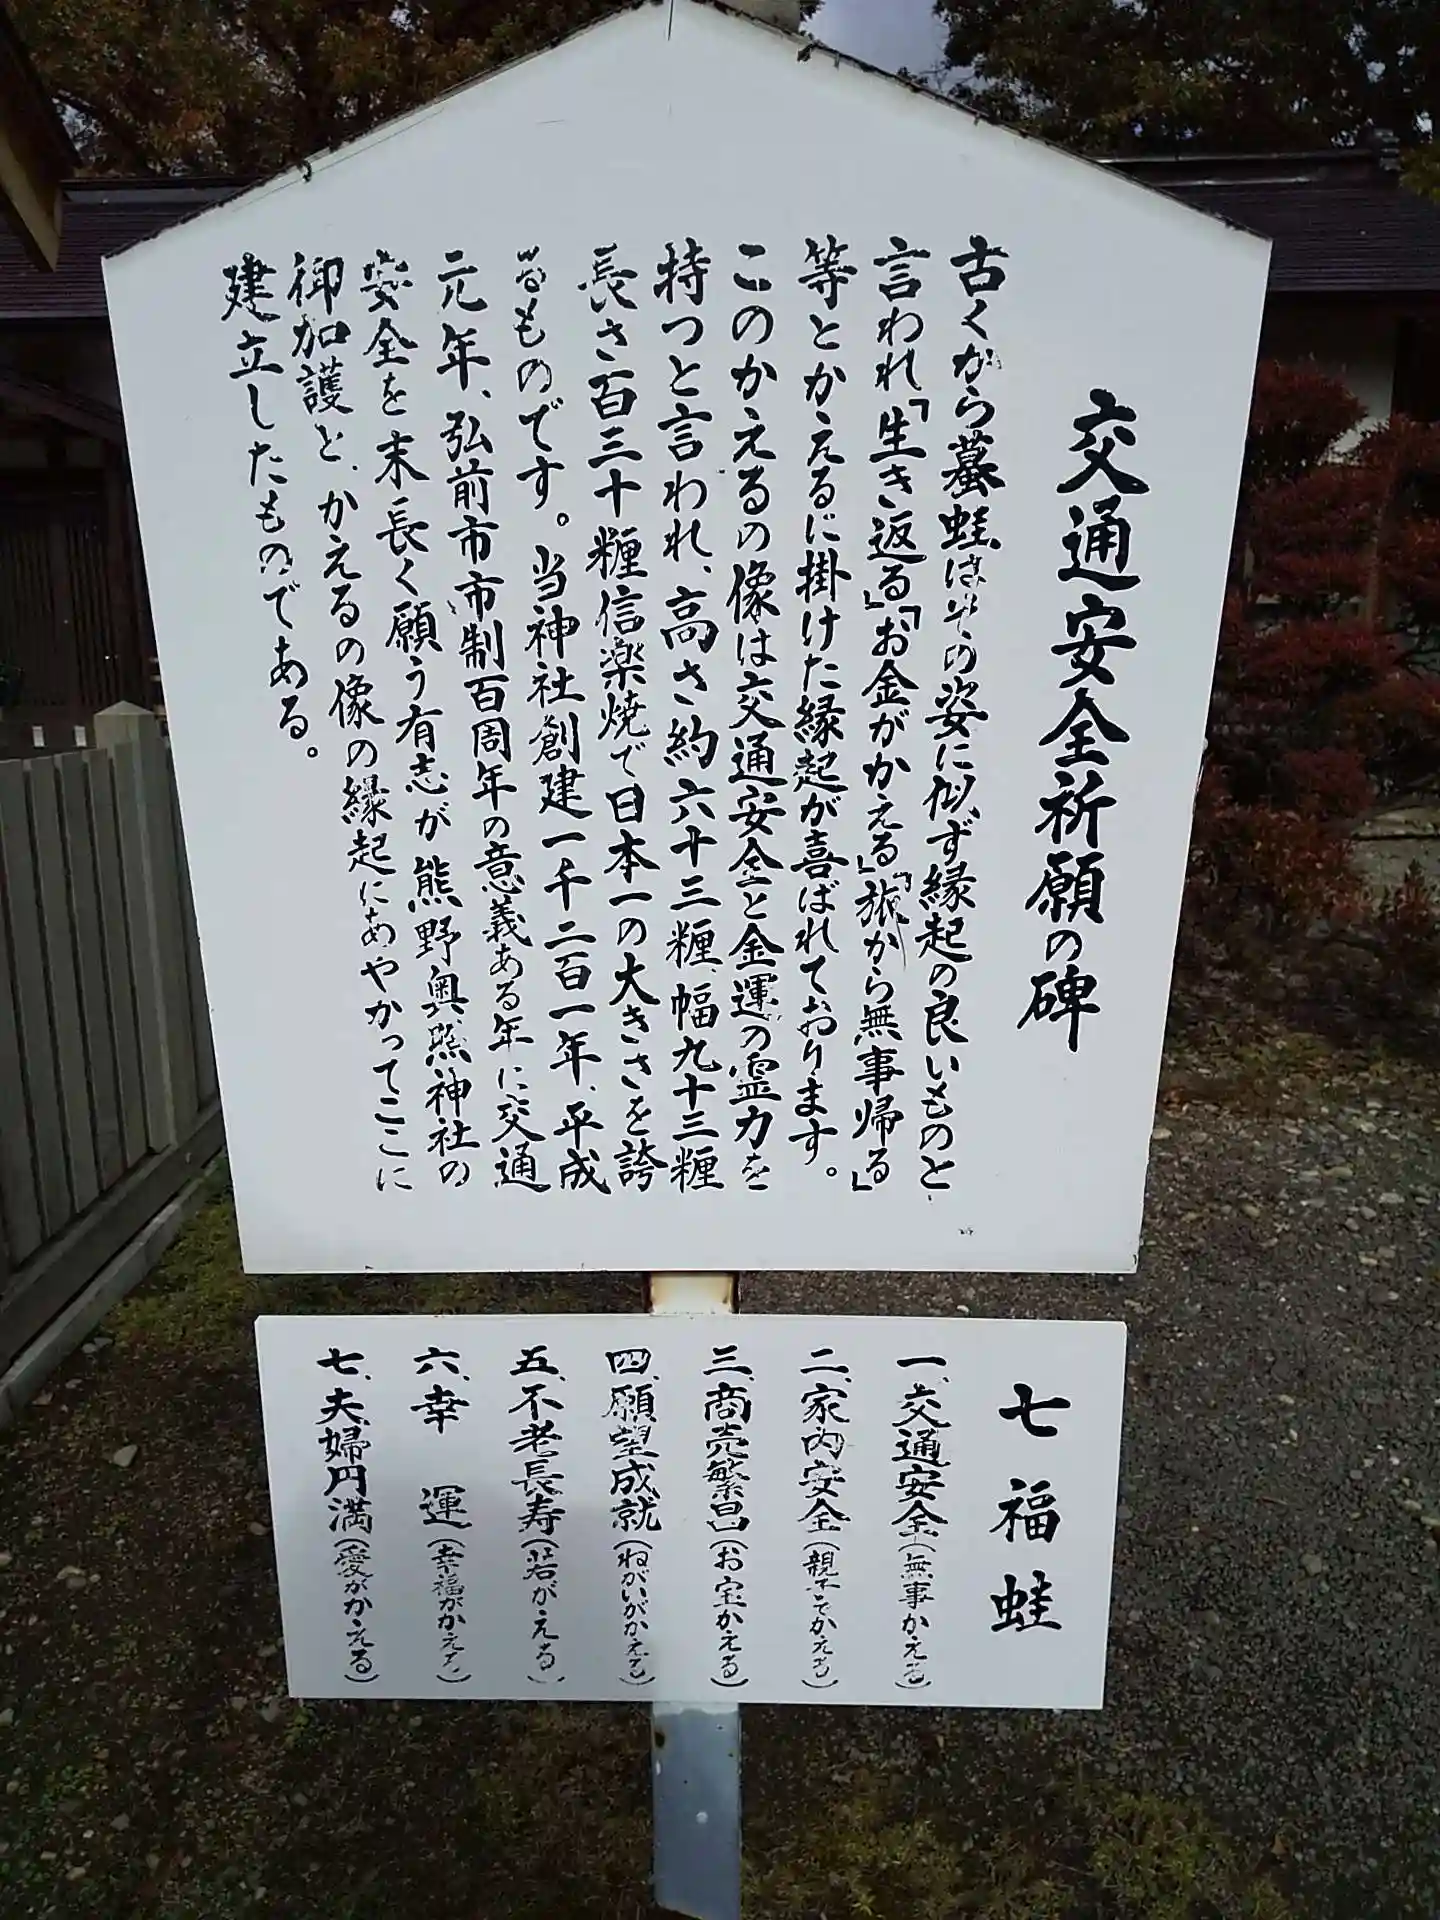 交通安全祈願の碑
古くから蟇蛙はその姿に似ず縁起の良いものと
言われ「生き返る」「お金がかえる」「旅から無事帰る」
等とかえるに掛けた縁起が喜ばれております。
このかえるの像は交通安全と金運の霊力を
持つと言われ、高さ約六十三糎、幅九十三糎
長さ百三十糎信楽焼で日本一の大きさを誇
るものです。当神社創建一千二百一年、平成
元年、弘前市市制百周年の意義ある年に交通
安全を末長く願う有志が熊野奥照神社の
御加護と、かえるの像の縁起にあやかってここに
建立したものである。
七福蛙
一、交通安全(無事かえる)
二、家内安全(親子でかえる)
三、商売繁昌(お宝かえる)
四、願望成就(ねがいがかえる)
五、不老長寿(若がえる)
六、幸運(幸福がかえる)
七、夫婦円満(愛がかえる)